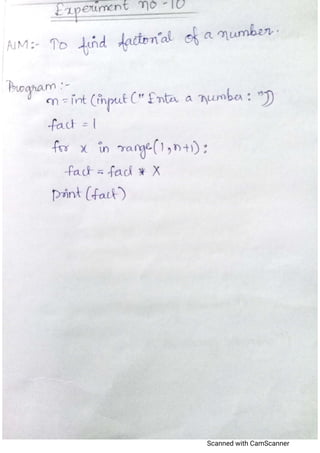 Experiment no - 10
AIM:- To find factorial of a number.
Program :-
n = int (input (" Enta a number : "))
fact = 1
for x in range(1, n+1) :
fact = fact * x
print (fact)
Scanned with CamScanner